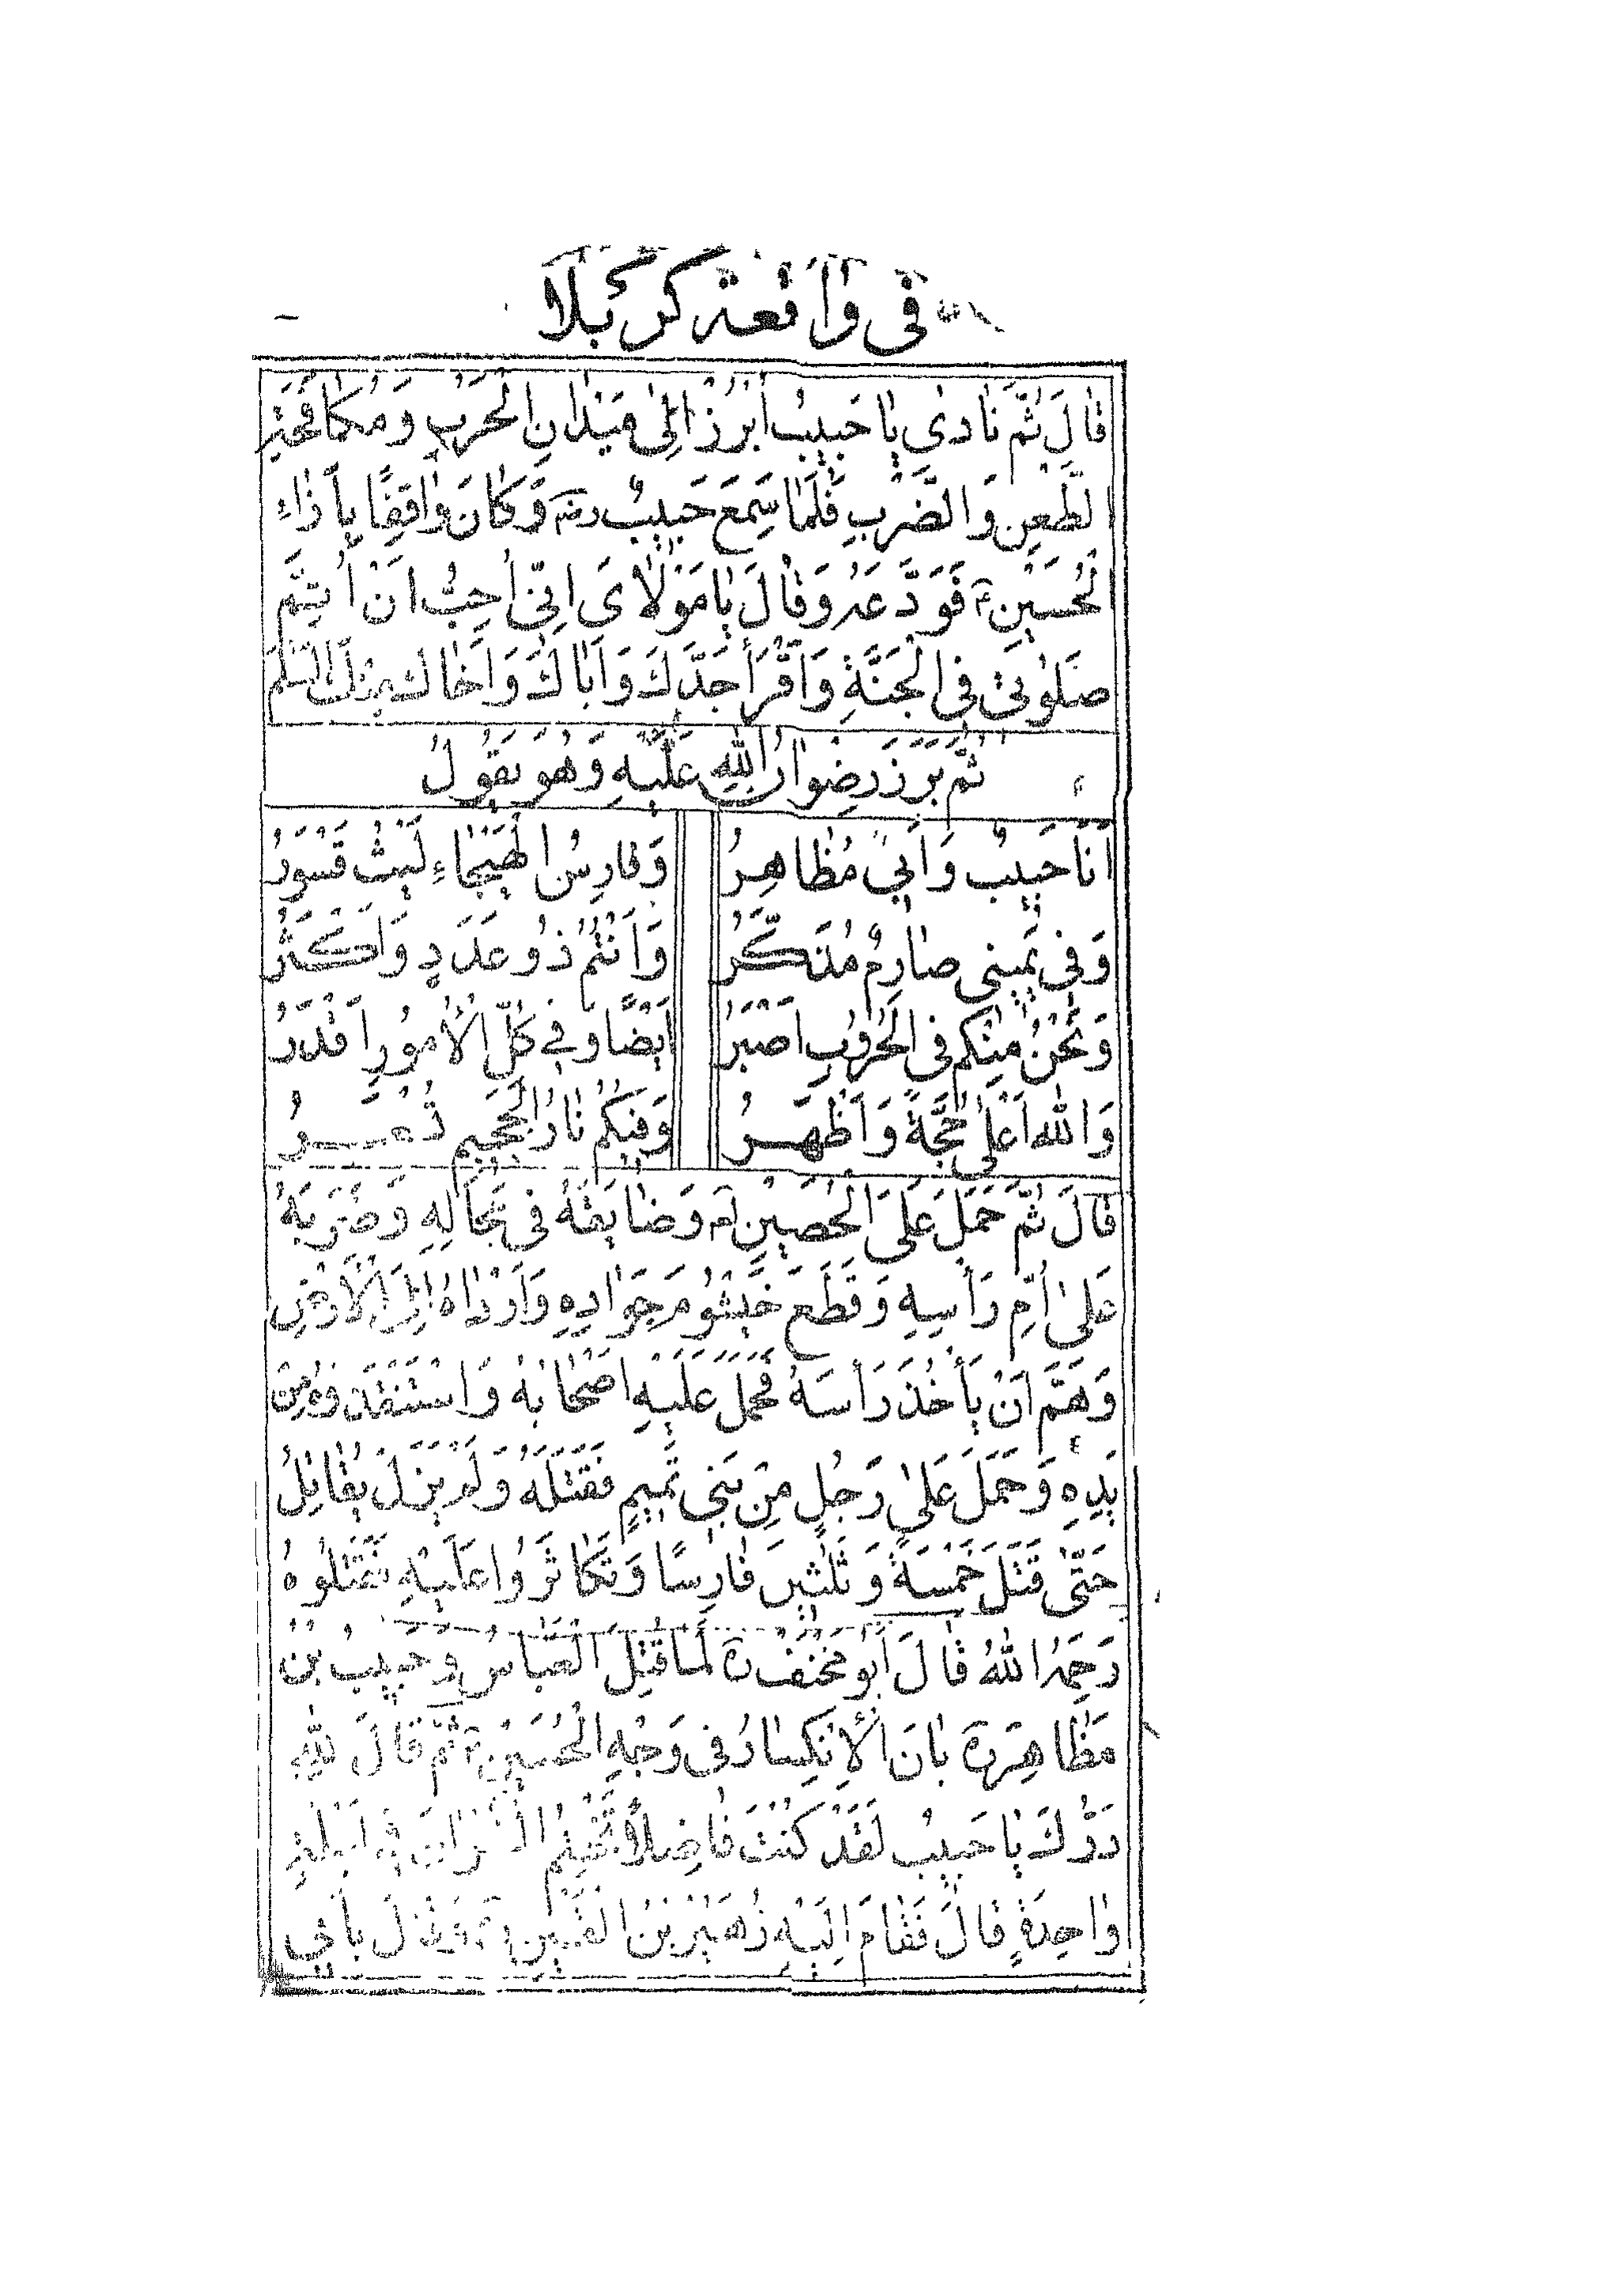 في واقعة كربلا
قَالَ ثُمَّ نَادىٰ يَا حَبِيبُ اُبْرُزْ اِلىٰ مَيْدَانِ الْحَرْبِ وَمُكَافَحَةِ
الطَّعْنِ وَالضَّرْبِ فَلَمَّا سَمِعَ حَبِيبٌ وَكَانَ وَاقِفًا بِأَذَاءِ
الْحُسَيْنِ ع فَوَدَّعَهُ وَقَالَ يَا مَوْلَاىَ اِنّى اُحِبُّ اَنْ اُتِمَّ
صَلٰوتِىْ فِى الْجَنَّةِ وَاَقْرَأَ جَدَّكَ وَاَبَاكَ وَاَخَاكَ مِنْكَ السَّلٰمَ
ثُمَّ بَرَزَ رِضْوَانُ اللّٰهِ عَلَيْهِ وَهُوَ يَقُولُ
اَنَا حَبِيبٌ وَاَبِىْ مُظَاهِرُ وَفَارِسُ الْهَيْجَاءِ لَيْثٌ قَسْوَرُ
وَفِى يَمِينِى صَارِمٌ مُذَكَّرُ وَاَنْتُمْ ذُو عَدَدٍ وَاَكْثَرُ
وَنَحْنُ مِنْكُم فِى الْحُرُوبِ اَصْبَرُ اَيْضًا وَفِى كُلِّ الْاُمُورِ اَقْدَرُ
وَاللّٰهُ اَعْلىٰ حُجَّةً وَاَظْهَرُ وَفِيكُمْ نَارُ الْجَحِيمِ تُسْعَرُ
قَالَ ثُمَّ حَمَلَ عَلَى الْحُصَيْنِ وَضَايَقَهُ فِى مَجَالِهِ وَضَرَبَهُ
عَلىٰ اُمِّ رَأْسِهِ وَقَطَعَ خَيْشُومَ جَوَادِهِ وَاَرْدَاهُ اِلَى الْاَرْضِ
وَهَمَّ اَنْ يَأْخُذَ رَأْسَهُ فَحَمَلَ عَلَيْهِ اَصْحَابُهُ وَاسْتَنْقَذُوهُ مِنْ
يَدِهِ وَحَمَلَ عَلىٰ رَجُلٍ مِنْ بَنِى تَمِيمٍ فَقَتَلَهُ وَلَمْ يَزَلْ يُقَاتِلُ
حَتّىٰ قَتَلَ خَمْسَةً وَثَلٰثِينَ فَارِسًا وَتَكَاثَرُوا عَلَيْهِ فَقَتَلُوهُ
رَحِمَهُ اللّٰهُ قَالَ اَبُو مِخْنَفْ ره لَمَّا قُتِلَ الْعَبَّاسُ وَحَبِيبُ بْنُ
مَظَاهِرَ ره بَانَ الْاِنْكِسَارُ فِى وَجْهِ الْحُسَيْنِ ع ثُمَّ قَالَ لِلّٰهِ
دَرُّكَ يَا حَبِيبُ لَقَدْ كُنْتَ فَاضِلًا تَخْتِمُ الْقُرْاٰنَ فِى لَيْلَةٍ
وَاحِدَةٍ قَالَ فَقَامَ اِلَيْهِ زُهَيْرُ بْنُ الْقَيْنِ وَقَالَ بِأَبِى